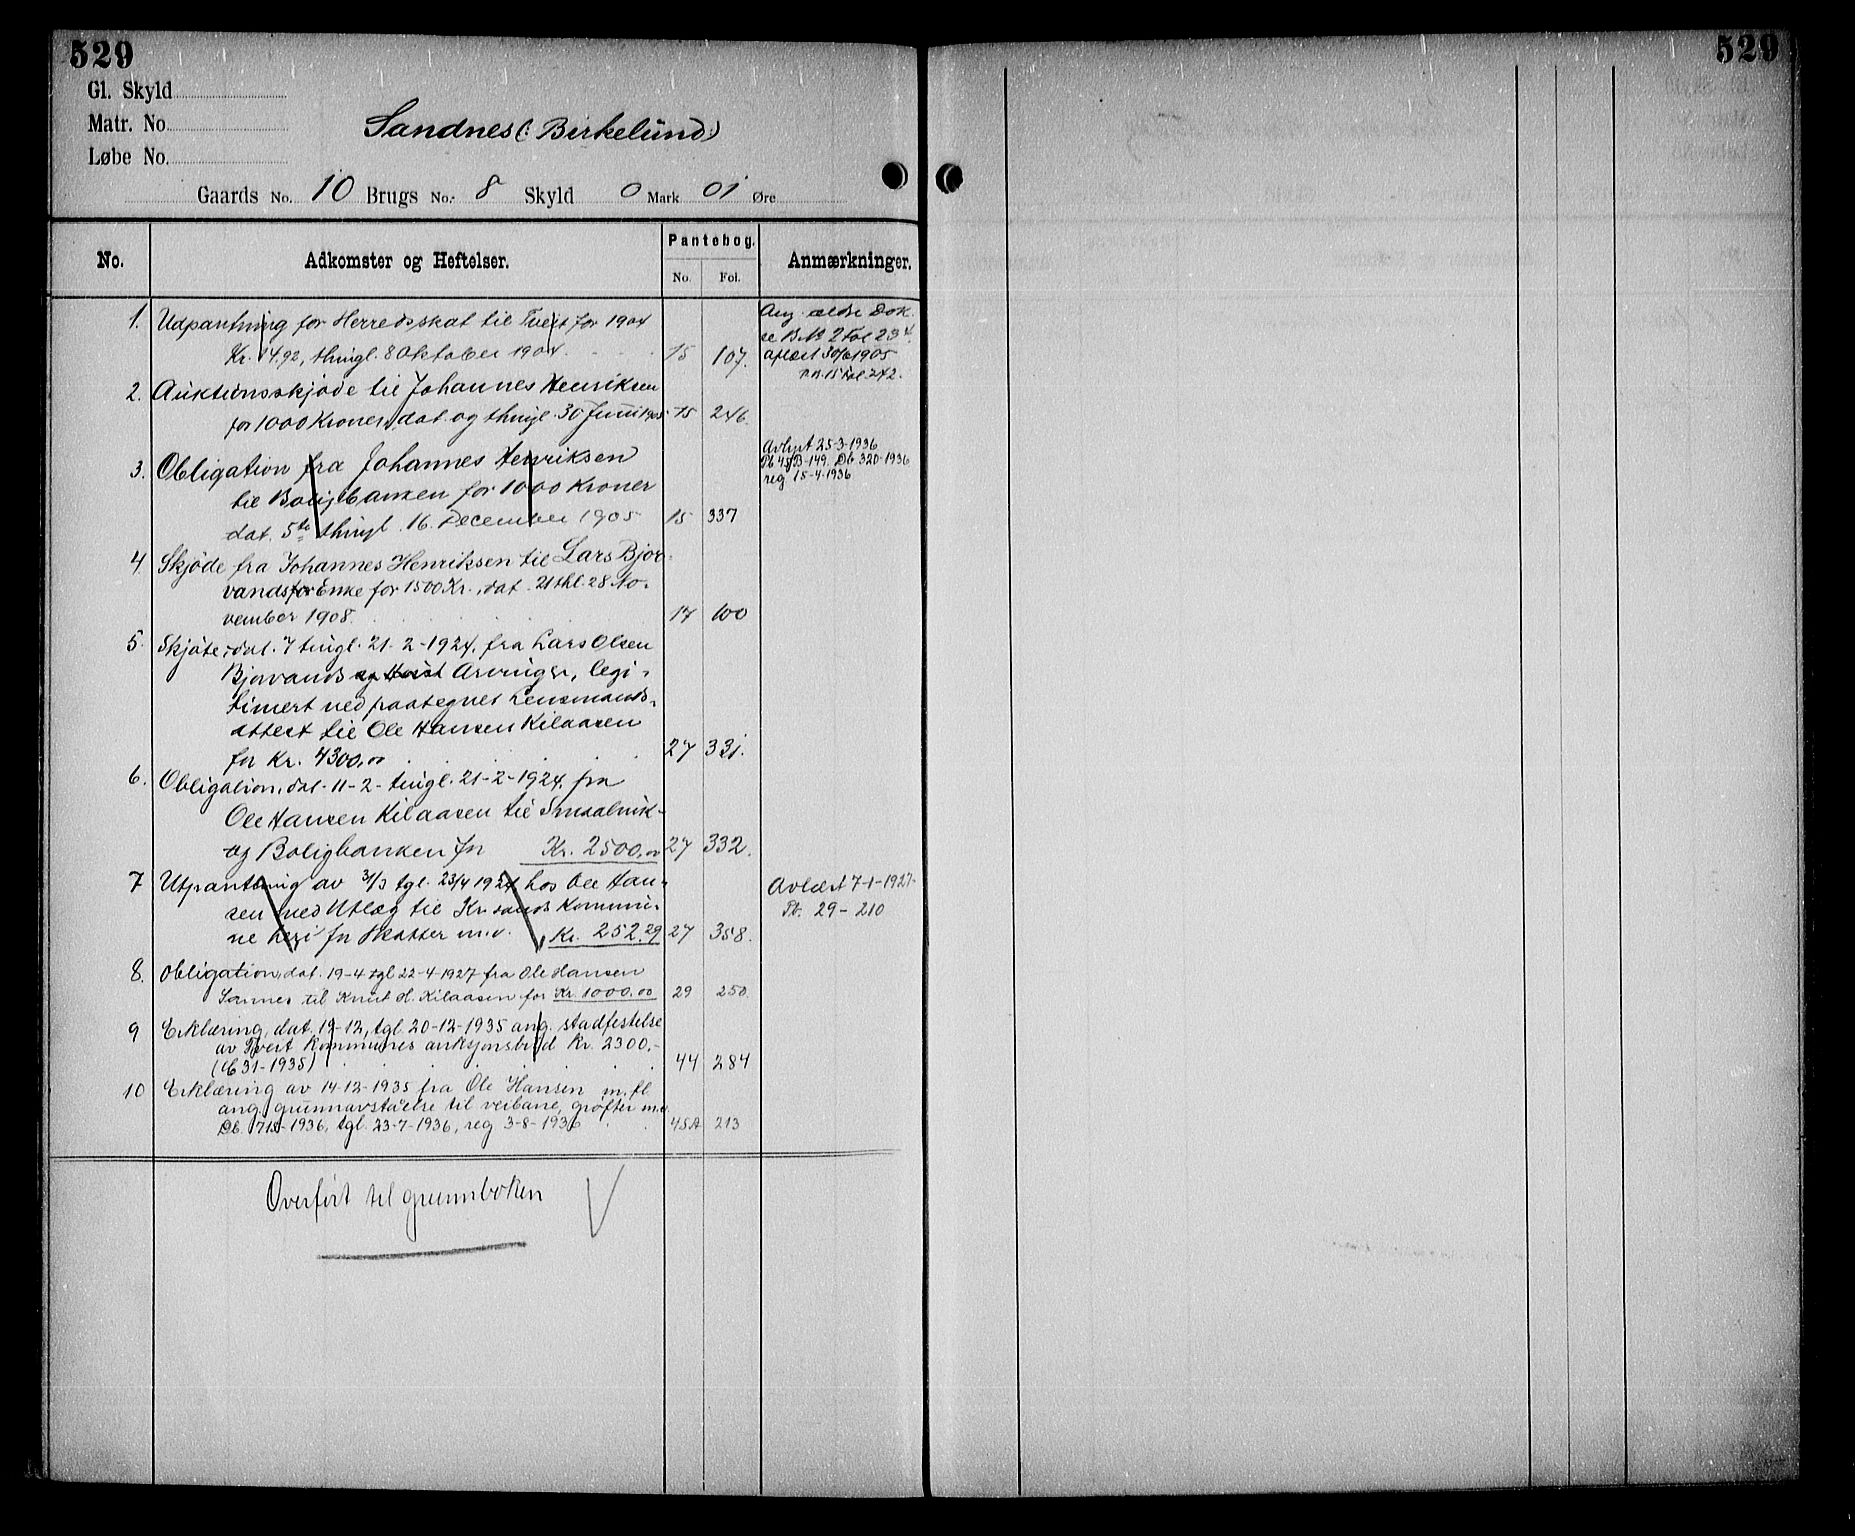 529
529
Gl. Skyld
Matr. No.
Løbe No.
Sandnes (: Birkelund)
Gaards No. 10 Brugs No. 8 Skyld 0 Mark 01 Øre
No.
Adkomster og Heftelser.
Pantebog.
No. Fol.
Anmærkninger.
1. Udpantning for Herredsskat til Tveit for 1904
Kr. 14.92, thingl. 8 Oktober 1904. 15 107.
Ang. ældre Dok.
se B No 2 Fol 234.
aflæst 30/6 1905
2. Auktionsskjøde til Johannes Henriksen
for 1000 Kroner, dat. og thingl. 30 Juni 1905 15 246.
3. Obligation fra Johannes Henriksen
til Boligbanken for 1000 Kroner
dat. 5te thingl. 16. December 1905 15 337
Avlyst 25-3-1936
Pb 45B-149. Db 320-1936
reg 15-4-1936
4. Skjøde fra Johannes Henriksen til Lars Bjor-
vands Enke for 1500 Kr., dat. 21 thl. 28 No-
vember 1908. 17 100
5. Skjøte, dat. 7 tingl. 21-2-1924, fra Lars Olsen
Bjorvands Arvinger, legi-
timert ved paategnet Lensmands-
attest til Ole Hansen Kilaasen
for Kr. 4300,00 27 331.
6. Obligation, dat. 11-2- tingl. 21-2-1924, fra
Ole Hansen Kilaasen til Smaabruk-
og Boligbanken for Kr. 2500,00 27 332.
7 Utpantning av 31/3 tgl. 23/4 1924 hos Ole Han-
sen med Utlæg til Kr.sands Kommu-
ne for Skatter m.v. Kr. 252.29 27 358.
Avlæst 7-1-1927.
Pb. 29-210
8. Obligation, dat. 19-4 tgl 22-4-1927 fra Ole Hansen
Sannes til Knut H. Kilaasen for Kr. 1000,00 29 250.
9 Erklæring, dat. 19-12, tgl. 20-12-1935 ang. stadfestelse
av Tveit kommunes auksjonsbud Kr. 2300,-
(C 31-1935) 44 284
10 Erklæring av 14-12-1935 fra Ole Hansen m.fl
ang. grunnavståelse til veibane, grøfter m.v.
Db. 715-1936, tgl. 23-7-1936, reg 3-8-1936 45A 213
Overført til grunnboken